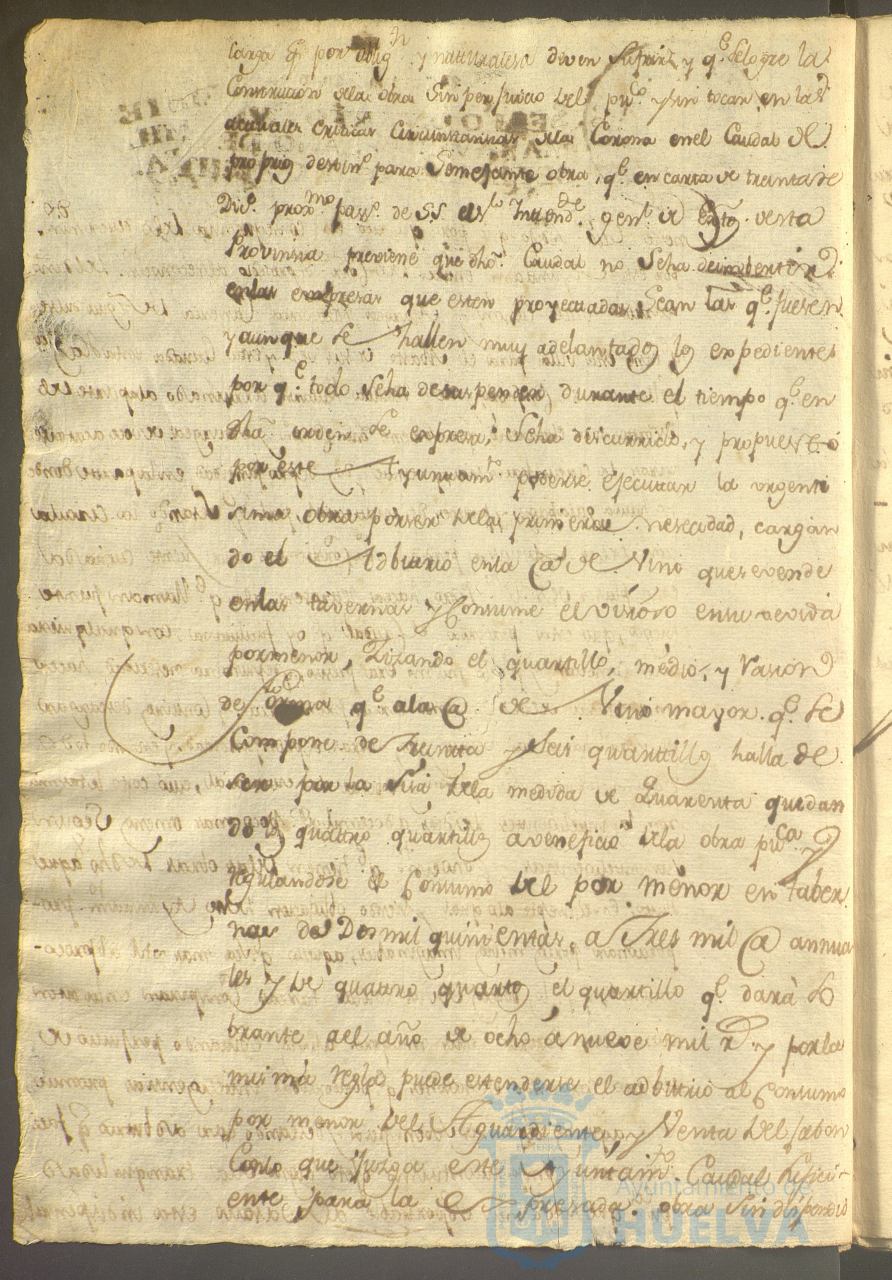 carga q.e por oblig.n y naturalesa deven sufrirl y q.e selogre la
Construcion dela obra sin perjuicio del pu.co y sin tocar en las
actuales criticas circunstancias dela Corona en el Caudal de
propiog destin.o para Semejante obra, q.e en carta de treinta de
Dic.e prox.mo pass.o de S.S. el s.r Intend.te gen.l de Exto. desta
Provinsia previene que dho. Caudal no seha deimbertir
enlas empresas que esten proyectadas, sean las q.e fuesen
y aunque se hallen muy adelantados los expedientes
por q.e todo seha desuspender durante el tiempo q.e en
dha orden se expresa, seha discurrido, y propuesto
por este Ayuntam.to poderse ejecutar la urgenti
sima obra porser dela primera nesecidad, cargan
do el Adbitrio enla @ de Vino que se vende
enlas tavernas y Consume el en su devida
pormenor, Zizando el quartillo, medio, y rasion
de forma q.e ala @ de Vino mayor q.e se
Compone de Treinta y seis quartillos halla de
ser por la Sisa dela medida de Quarenta quedan
do los quattro quartillos a veneficio dela obra pu.ca y
regulandose el Consumo del por menor en taber
nas de Dos mil quinientas, a Tres mil @ annua
les y de quattro quartos el quartillo q.e dará so
brante del año de ocho á nueve mil r.s y por la
misma regla puede estenderse el adbitrio al Consumo
por menor del Aguardiente, y Venta del Jabon
Conlo que Juzga este Ayuntam.to Caudal suficii-
ente para la expresada obra sin dispendio
Ayuntamiento de
HUELVA